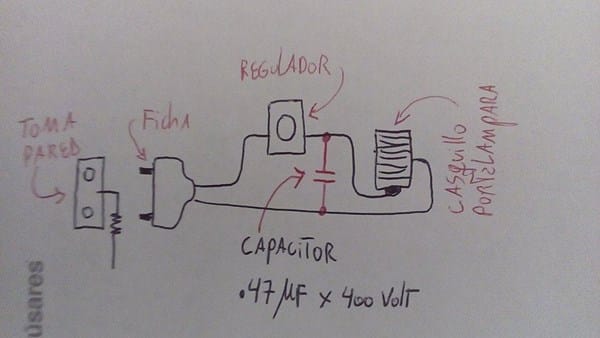 REGULADOR
TOMA
PARED
Ficha
CASQUILLO
PORTALAMPARA
CAPACITOR
.47 µF x 400 VOLT
úsares